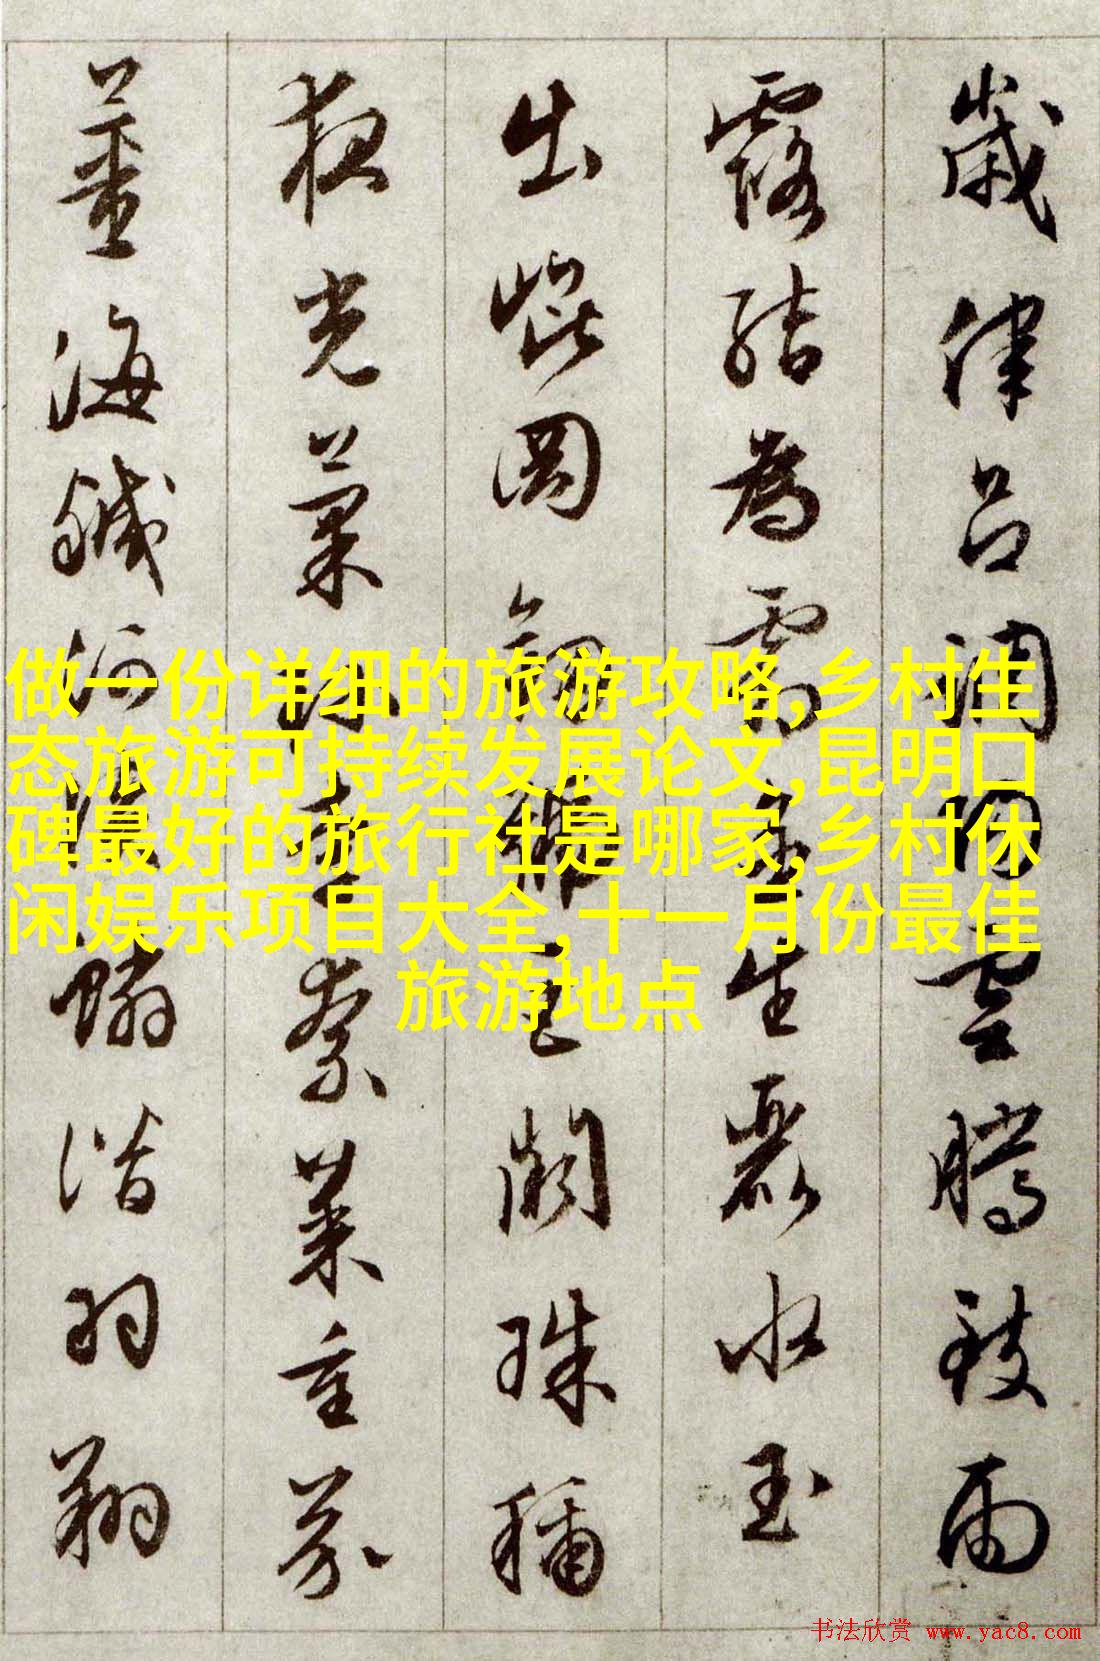 歲律呂調陽雲騰致雨
露結為霜金生麗水玉
出崐岡劍號巨闕珠稱
夜光菓珍李柰菜重芥
薑海鹹河淡鱗潛羽翔
做一份详细的旅游攻略,乡村生
态旅游可持续发展论文,昆明口
碑最好的旅行社是哪家,乡村休
闲娱乐项目大全,十一月份最佳
旅游地点
书法欣赏 www.yac8.com